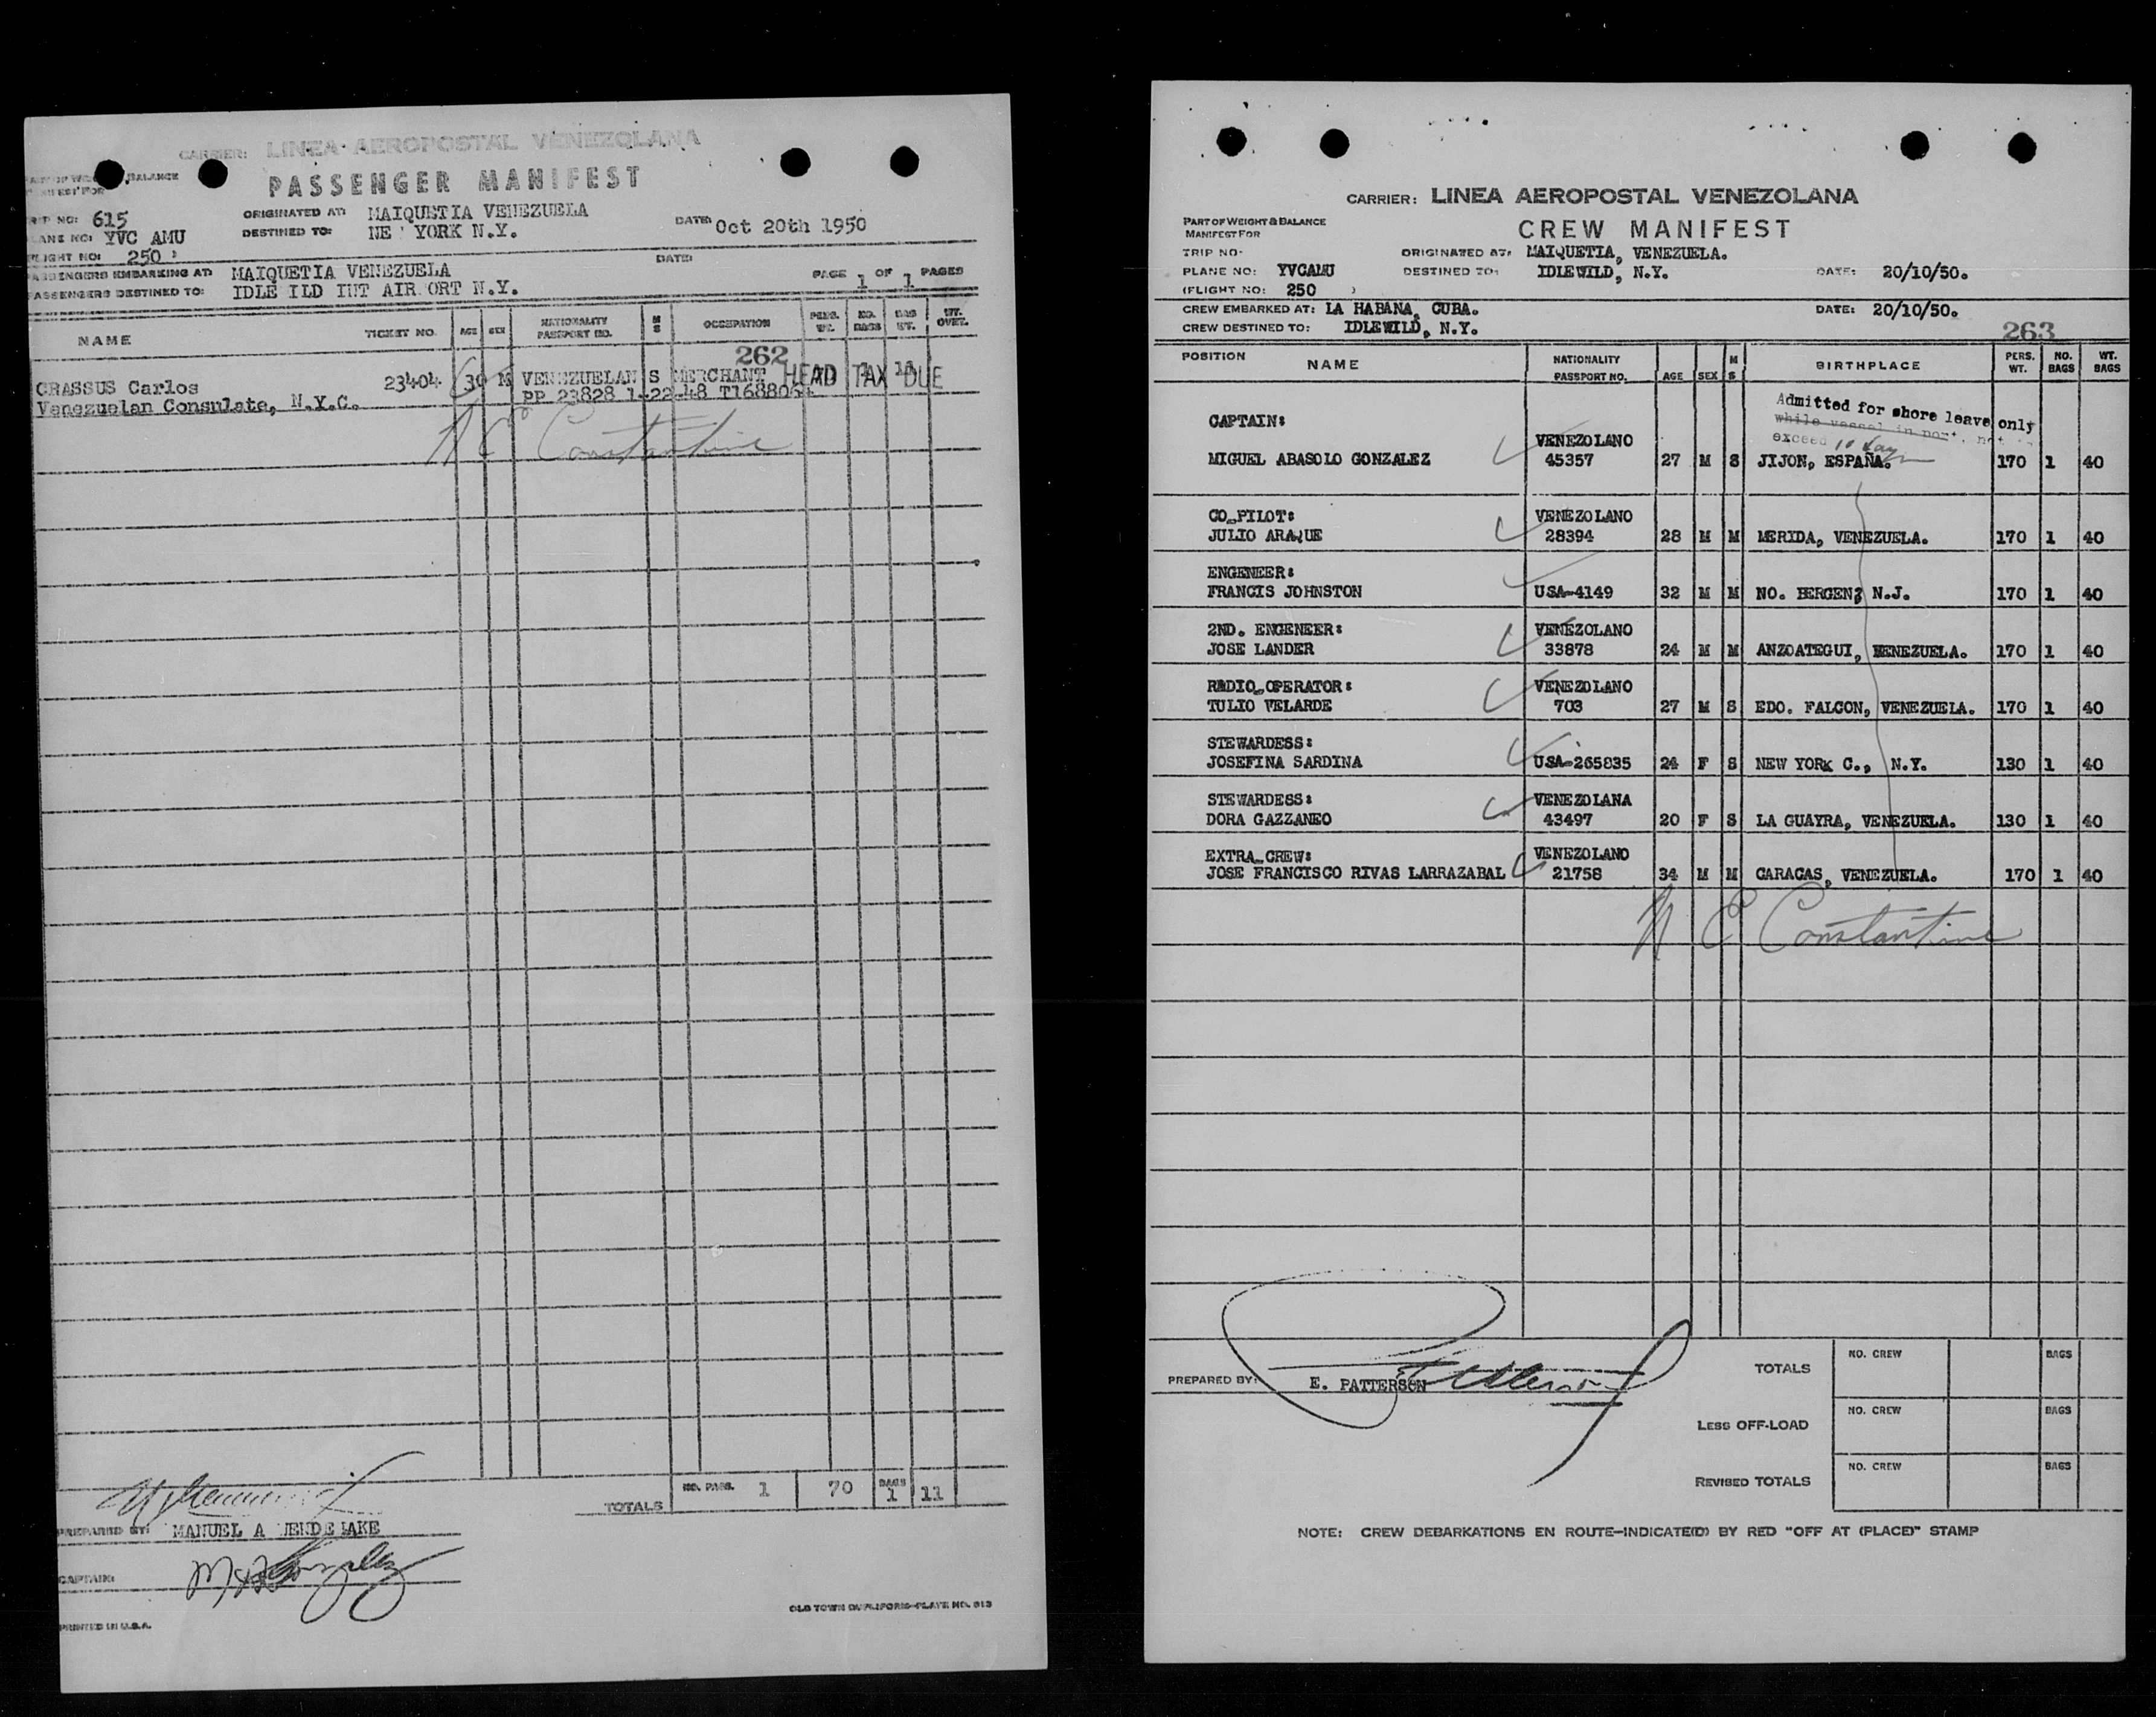 CARRIER: LINEA AEROPOSTAL VENEZOLANA
BALANCE
PASSENGER MANIFEST
615
ORIGINATED AT: MAIQUETIA VENEZUELA
DATE: Oct 20th 1950
YVC AMU
DESTINED TO: NE YORK N.Y.
250
DATE:
PASSENGERS EMBARKING AT: MAIQUETIA VENEZUELA
PAGE 1 OF 1 PAGES
PASSENGERS DESTINED TO: IDLE ILD INT AIR ORT N.Y.
NAME TICKET NO. AGE SEX NATIONALITY PASSPORT NO. M S OCCUPATION PERS. WT. NO. BAGS BAG WT. WT. OVER.
262
HEAD TAX DUE
GRASSUS Carlos 23404 30 M VENEZUELAN S MERCHANT
Venezuelan Consulate, N.Y.C. PP 23828 1-22-48
N C Constantine
TOTALS NO. PASS. 1 70 BAGS 1 11
PREPARED BY: MANUEL A
CAPTAIN:
OLD TOWN DUPLIFORMS-PLATE NO. 613
PRINTED IN U.S.A.
CARRIER: LINEA AEROPOSTAL VENEZOLANA
PART OF WEIGHT & BALANCE
MANIFEST FOR
CREW MANIFEST
TRIP NO. ORIGINATED AT: MAIQUETIA, VENEZUELA.
PLANE NO: YVCAMU DESTINED TO: IDLEWILD, N.Y. DATE: 20/10/50.
(FLIGHT NO: 250 )
CREW EMBARKED AT: LA HABANA, CUBA. DATE: 20/10/50.
CREW DESTINED TO: IDLEWILD, N.Y.
263
POSITION NAME NATIONALITY PASSPORT NO. AGE SEX M S BIRTHPLACE PERS. WT. NO. BAGS WT. BAGS
Admitted for shore leave only
while vessel in port, not to
exceed 10 days
CAPTAIN: VENEZOLANO
MIGUEL ABASOLO GONZALEZ 45357 27 M S JIJON, ESPAÑA. 170 1 40
CO_PILOT: VENEZOLANO
JULIO ARAQUE 28394 28 M M MERIDA, VENEZUELA. 170 1 40
ENGENEER:
FRANCIS JOHNSTON USA-4149 32 M M NO. BERGEN, N.J. 170 1 40
2ND. ENGENEER: VENEZOLANO
JOSE LANDER 33878 24 M M ANZOATEGUI, VENEZUELA. 170 1 40
RADIO_OPERATOR: VENEZOLANO
TULIO VELARDE 703 27 M S EDO. FALCON, VENEZUELA. 170 1 40
STEWARDESS:
JOSEFINA SARDINA USA-265835 24 F S NEW YORK C., N.Y. 130 1 40
STEWARDESS: VENEZOLANA
DORA GAZZANEO 43497 20 F S LA GUAYRA, VENEZUELA. 130 1 40
EXTRA_CREW: VENEZOLANO
JOSE FRANCISCO RIVAS LARRAZABAL 21758 34 M M CARACAS, VENEZUELA. 170 1 40
N C Constantine
PREPARED BY: E. PATTERSON
TOTALS NO. CREW BAGS
LESS OFF-LOAD NO. CREW BAGS
REVISED TOTALS NO. CREW BAGS
NOTE: CREW DEBARKATIONS EN ROUTE-INDICATE(D) BY RED "OFF AT (PLACE)" STAMP